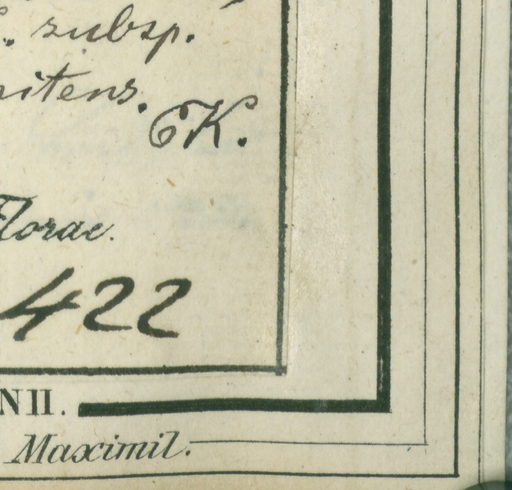 subsp.
nitens.
CK.
Florae.
422
NII.
Maximil.